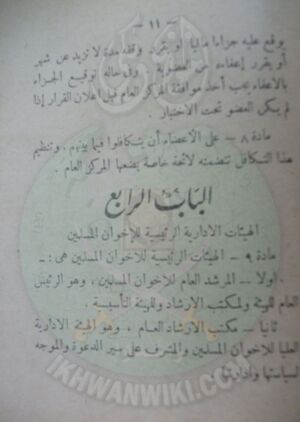 — ١١ —
يوقع عليه جزاءا ماليا أو يقرر وقفه مدة لا تزيد عن شهر
أو يقرر إعفاءه من العضوية وفى حالة توقيع الجزاء
بالاعفاء يجب أخذ موافقة المركز العام قبل اعلان القرار إذا
لم يكن العضو تحت الاختبار .
مادة ٨ — على الأعضاء أن يتكافلوا فيما بينهم . وتنظيم
هذا التكافل تتضمنه لائحة خاصة يضعها المركز العام .
الباب الرابع
الهيئات الادارية الرئيسية للإخوان المسلمين
مادة ٩ — الهيئات الرئيسية للإخوان المسلمين هى : —
أولا — المرشد العام للاخوان المسلمين ، وهو الرئيس
العام للهيئة ولمكتب الارشاد وللهيئة التأسيسية .
ثانيا — مكتب الارشاد العام ، وهو الهيئة الادارية
العليا للاخوان المسلمين والمشرف على سير الدعوة والموجه
لسياستها وإدارتها .
IKHWANWIKI.COM